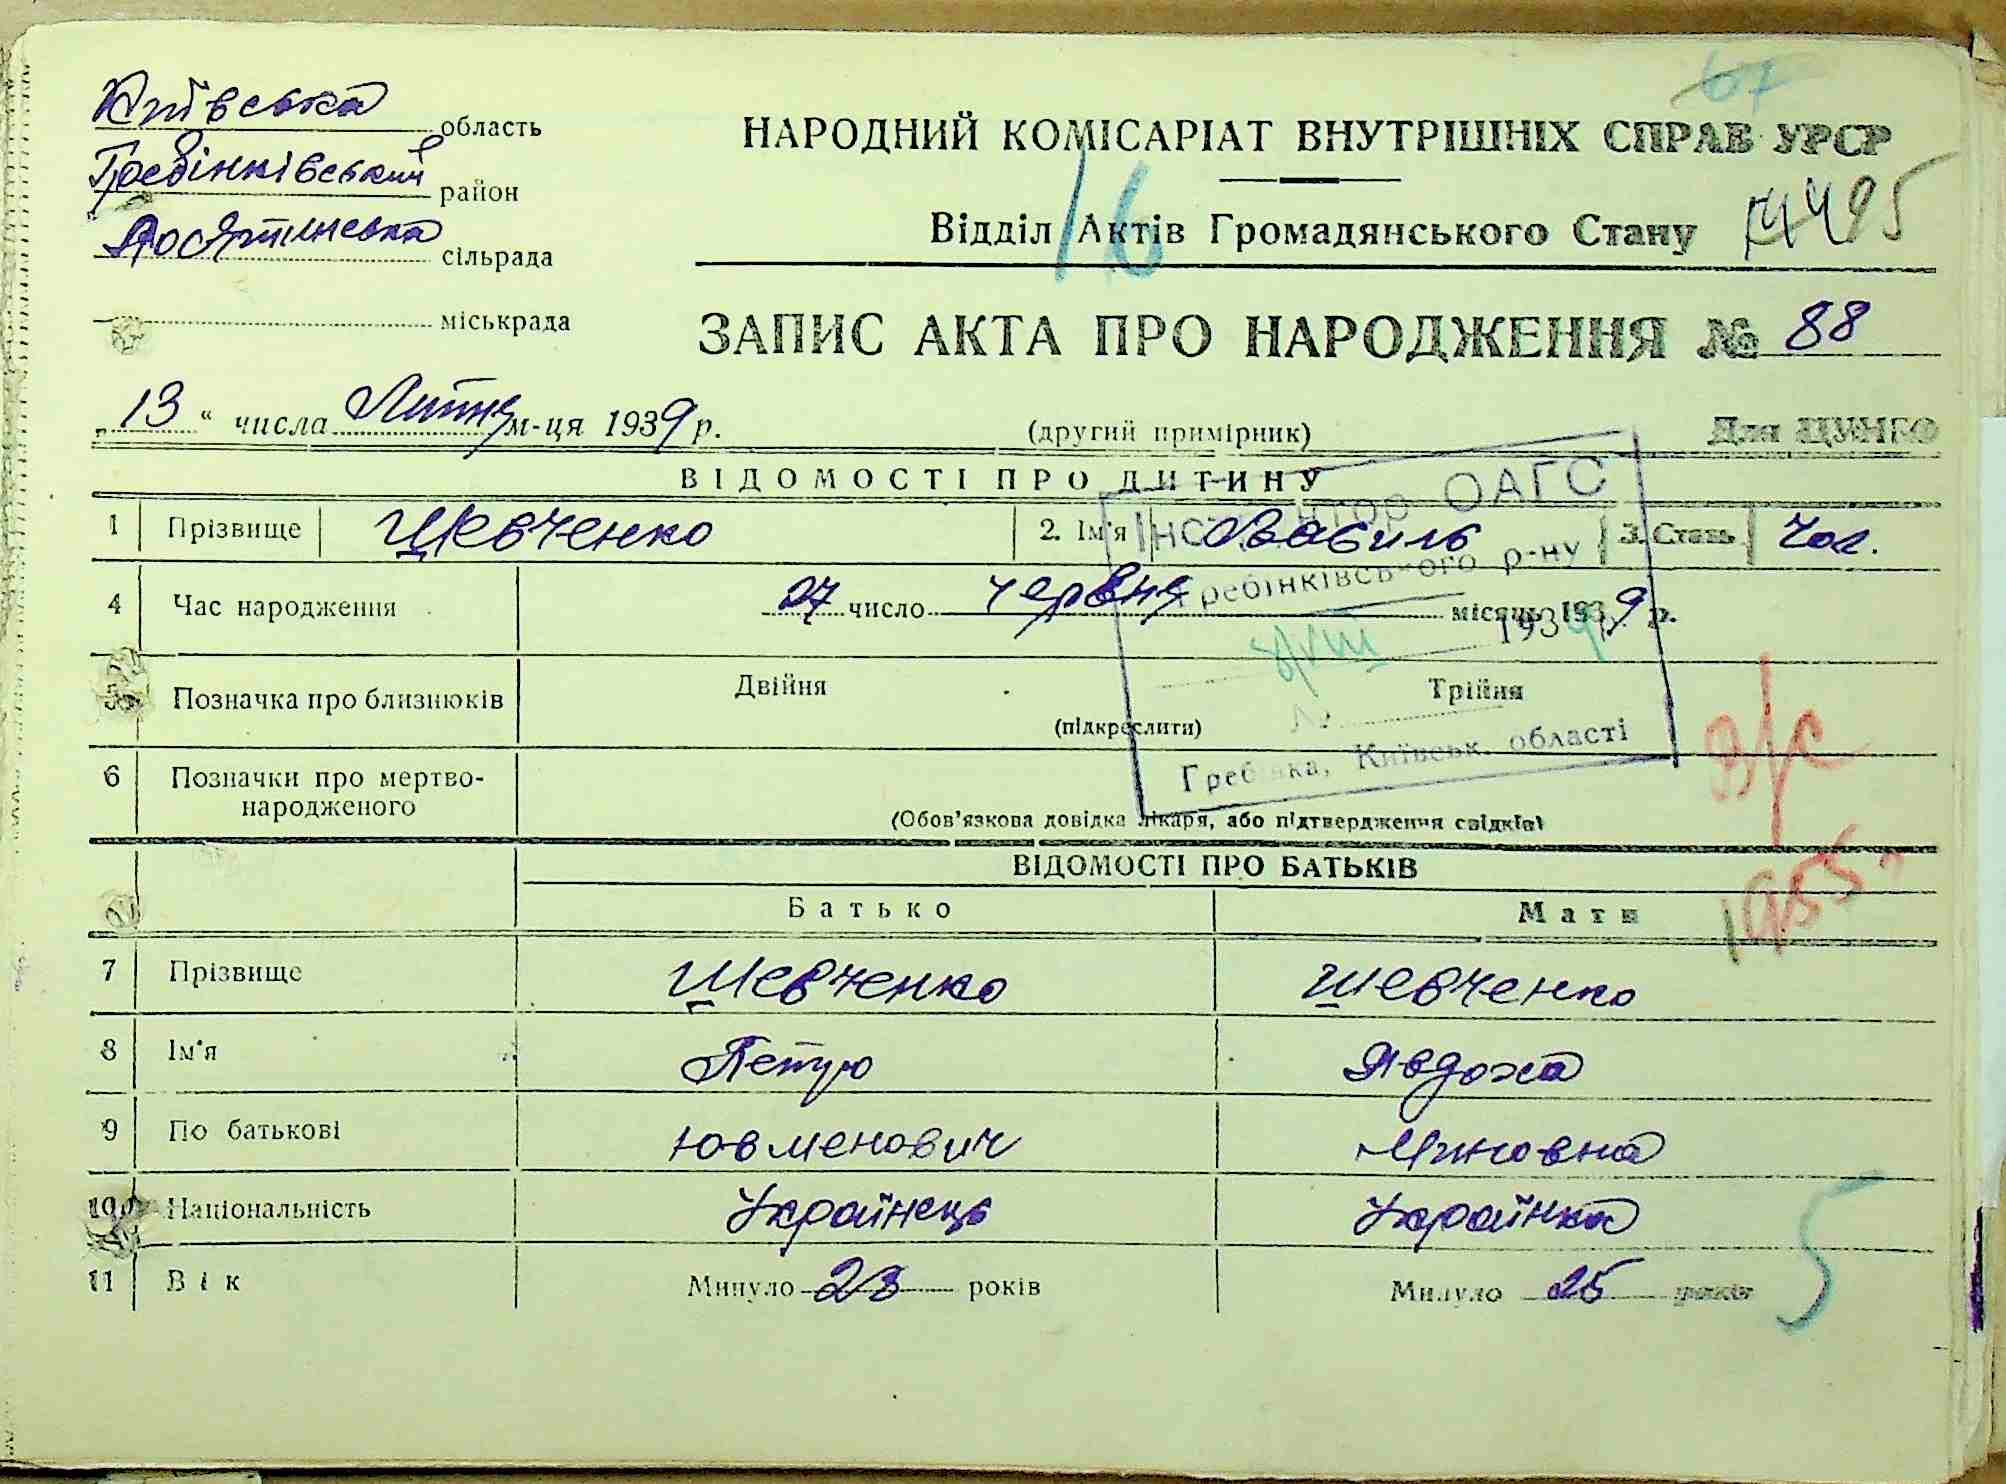 67
Київська область
НАРОДНИЙ КОМІСАРІАТ ВНУТРІШНІХ СПРАВ УРСР
Гребінківський район
16
Відділ Актів Громадянського Стану
95
Досятинська сільрада
міськрада
ЗАПИС АКТА ПРО НАРОДЖЕННЯ № 88
„13“ числа Липня м-ця 1939 р.
(другий примірник)
Для ЦУНГО
ВІДОМОСТІ ПРО ДИТИНУ
1 Прізвище Шевченко 2. Ім'я Василь 3. Стать Чол.
4 Час народження 27 число червня місяць 1939 р.
Інспектор ОАГС
Гребінківського р-ну
8/VIII 1939 р.
№
Гребінка, Київськ. області
5 Позначка про близнюків Двійня Трійня
(підкреслити)
6 Позначки про мертво-
народженого
(Обов'язкова довідка лікаря, або підтвердження свідків)
1955
ВІДОМОСТІ ПРО БАТЬКІВ
Батько Мати
7 Прізвище Шевченко Шевченко
8 Ім'я Петро Явдоха
9 По батькові Ювменович Миновна
10 Національність Українець Українка
11 Вік Минуло 28 років Минуло 25 років
5